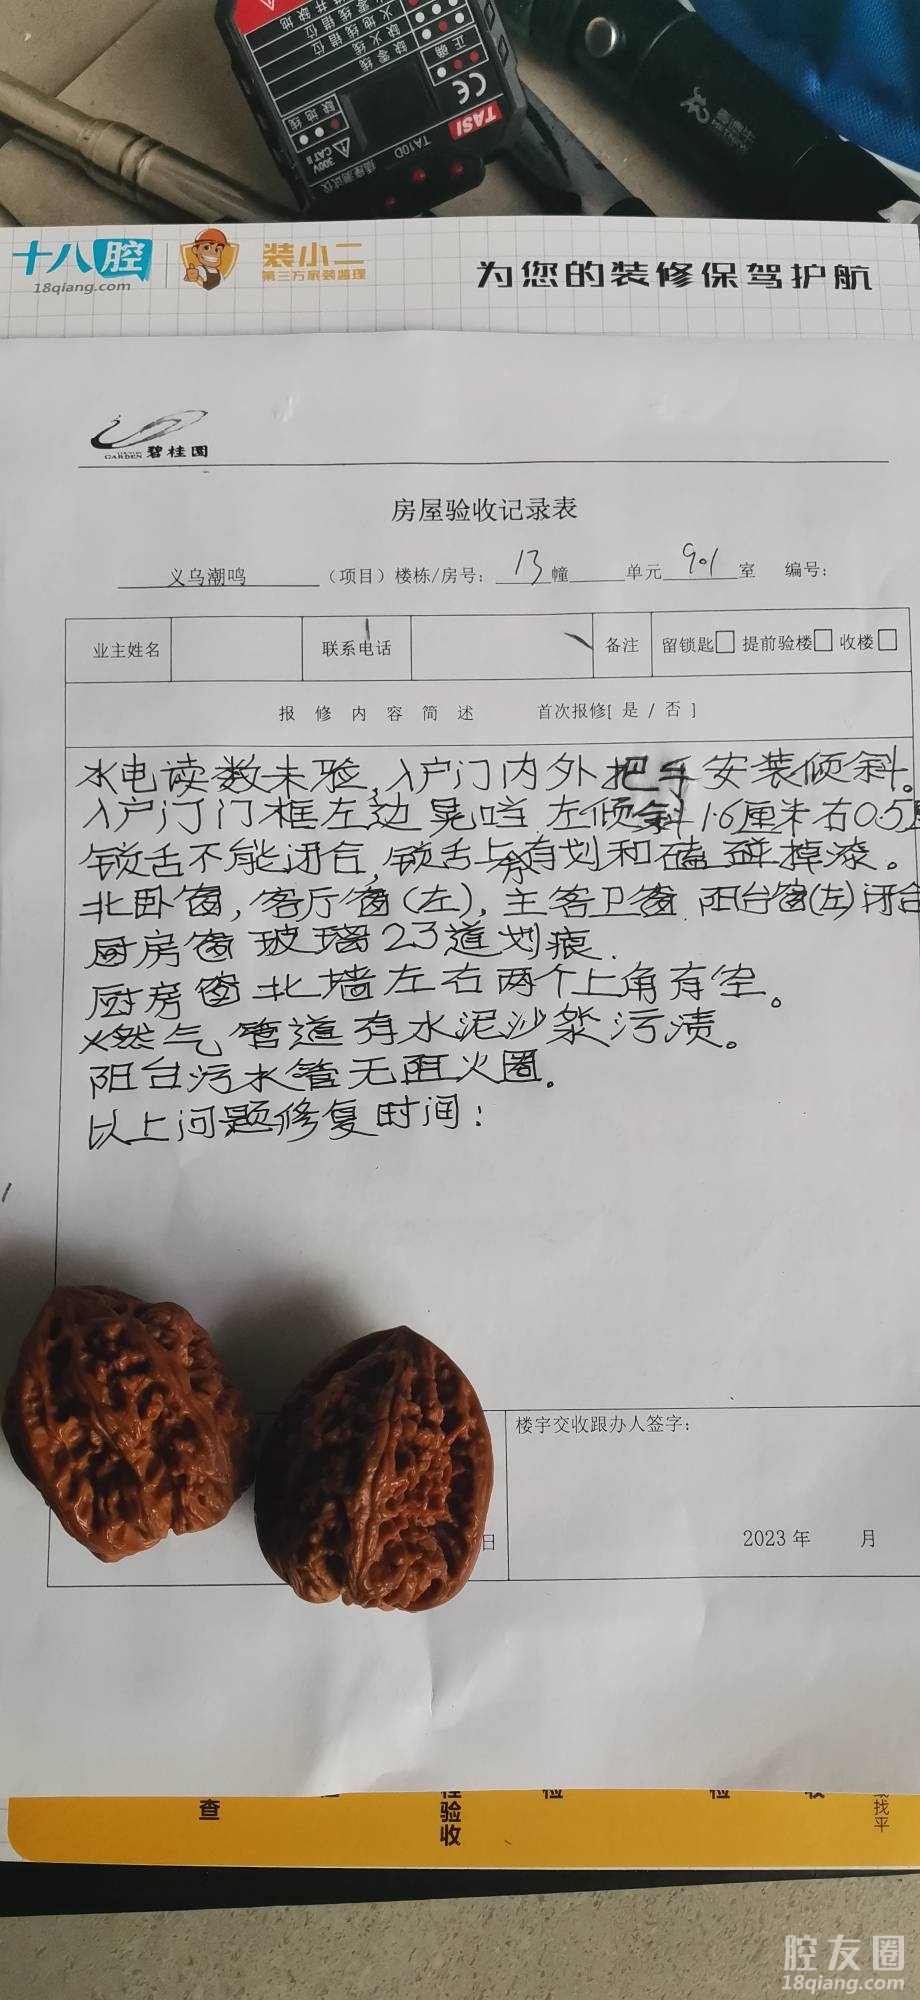 TASI
TA10D
插座测试仪
300V
CAT II
CE
正确
缺零线
缺火线错位
缺地线
十八腔
18qiang.com
装小二
第三方家装监理
为您的装修保驾护航
GARDEN 碧桂园
房屋验收记录表
义乌潮鸣（项目）楼栋/房号：13幢 单元901室 编号：
业主姓名 联系电话 备注 留锁匙□ 提前验楼□ 收楼□
报修内容简述 首次报修[ 是 / 否 ]
水电读数未验，入户门内外把手安装倾斜。
入户门门框左边晃咣 左倾斜1.6厘米右0.5厘
锁舌不能闭合，锁舌上有划和磕碰掉漆。
北卧窗，客厅窗(左)，主客卫窗 阳台窗(左)闭合
厨房窗玻璃23道划痕.
厨房窗北墙左右两个上角有空。
燃气管道有水泥沙浆污渍。
阳台污水管无阻火圈。
以上问题修复时间：
楼宇交收跟办人签字：
日
2023年 月
查
程验收
检
检
收
或找平
腔友圈
18qiang.com